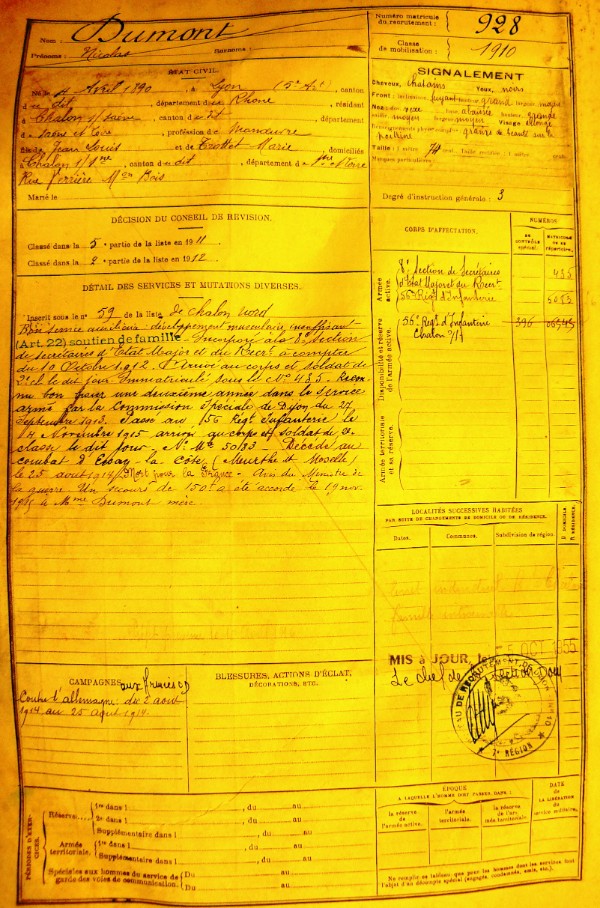 Nom : Dumont
Prénoms : Nicolas Surnoms :
Numéro matricule du recrutement : 928
Classe de mobilisation : 1910
ÉTAT CIVIL.
Né le 4 Avril 1890, à Lyon (5e Ar), canton
dudit, département du Rhône, résidant
à Chalon s/ Saône, canton dudit, département
de Saône et Loire, profession de Manœuvre
fils de Jean Louis et de Trottet Marie, domiciliés
à Chalon s/ Sne, canton dudit, département de Sne & Loire
Rue Ferrière Mon Bois
Marié le
SIGNALEMENT
Cheveux, chatains Yeux, noirs
Front : inclinaison fuyant hauteur grand largeur moy
Nez : base abaissée hauteur grande
saillie moyen largeur moyen Visage allongé
Renseignements physionomiques : grains de beauté sur la
poitrine
Taille : 1 mètre 74 cent. Taille rectifiée : 1 mètre cent.
Marques particulières :
Degré d'instruction générale : 3
DÉCISION DU CONSEIL DE REVISION.
Classé dans la 5e partie de la liste en 1911
Classé dans la 2e partie de la liste en 1912
CORPS D'AFFECTATION.
NUMÉROS
AU CONTRÔLE SPÉCIAL.
MATRICULE OU AU RÉPERTOIRE.
Armée active.
8e Section de Secrétaires
d'Etat Major et du Recrt 435
156e Régt d'Infanterie 5083
Disponibilité et réserve de l'armée active.
56e Régt d'Infanterie 396 06545
Chalon s/s
Armée territoriale et sa réserve.
DÉTAIL DES SERVICES ET MUTATIONS DIVERSES.
Inscrit sous le n° 59 de la liste de Chalon Nord
Bon service auxiliaire développement musculaire insuffisant
(Art. 22) soutien de famille. Incorporé à la 8e Section
de secrétaires d'Etat Major et du Recrt à compter
du 10 Octobre 1912. Arrivé au corps et soldat de
2e cl le dit jour. Immatriculé sous le N° 435. Recon-
nu bon pour une deuxième année dans le service
armé par la Commission Spéciale de Dijon du 27
Septembre 1913. Passé au 156 Régt Infanterie le
14 Novembre 1913 arrivé au corps et soldat de 2e
classe le dit jour. N° Mle 5083. Décédé au
combat à la Côte, Meurthe et Moselle
le 25 août 1914 Mort pour la France. Avis du Ministre de
la guerre. Un secours de 150f a été accordé le 19 nov.
1915 à Mme Dumont mère
LOCALITÉS SUCCESSIVES HABITÉES
PAR SUITE DE CHANGEMENTS DE DOMICILE OU DE RÉSIDENCE.
Dates. Communes. Subdivision de région. D. DOMICILE R. RÉSIDENCE.
MIS à JOUR, le 5 OCT 1955
Le chef de
BUREAU DE RECRUTEMENT DE DIJON
7e RÉGION
CAMPAGNES.
Contre l'allemagne du 2 aout
1914 au 25 aout 1914.
BLESSURES, ACTIONS D'ÉCLAT,
DÉCORATIONS, ETC.
PÉRIODES D'EXERCICES.
Réserve
1re dans l , du au
2e dans l , du au
Supplémentaire dans l , du au
Armée territoriale.
1re dans l , du au
Supplémentaire dans l , du au
Spéciales aux hommes du service de garde des voies de communication.
Du au
Du au
ÉPOQUE
À LAQUELLE L'HOMME DOIT PASSER DANS :
la réserve de l'armée active.
l'armée territoriale.
la réserve de l'armée territoriale.
DATE DE LA LIBÉRATION DU service militaire.
Ne remplir ce tableau que pour les hommes dont les services font
l'objet d'un décompte spécial (engagés, condamnés, omis, etc.).